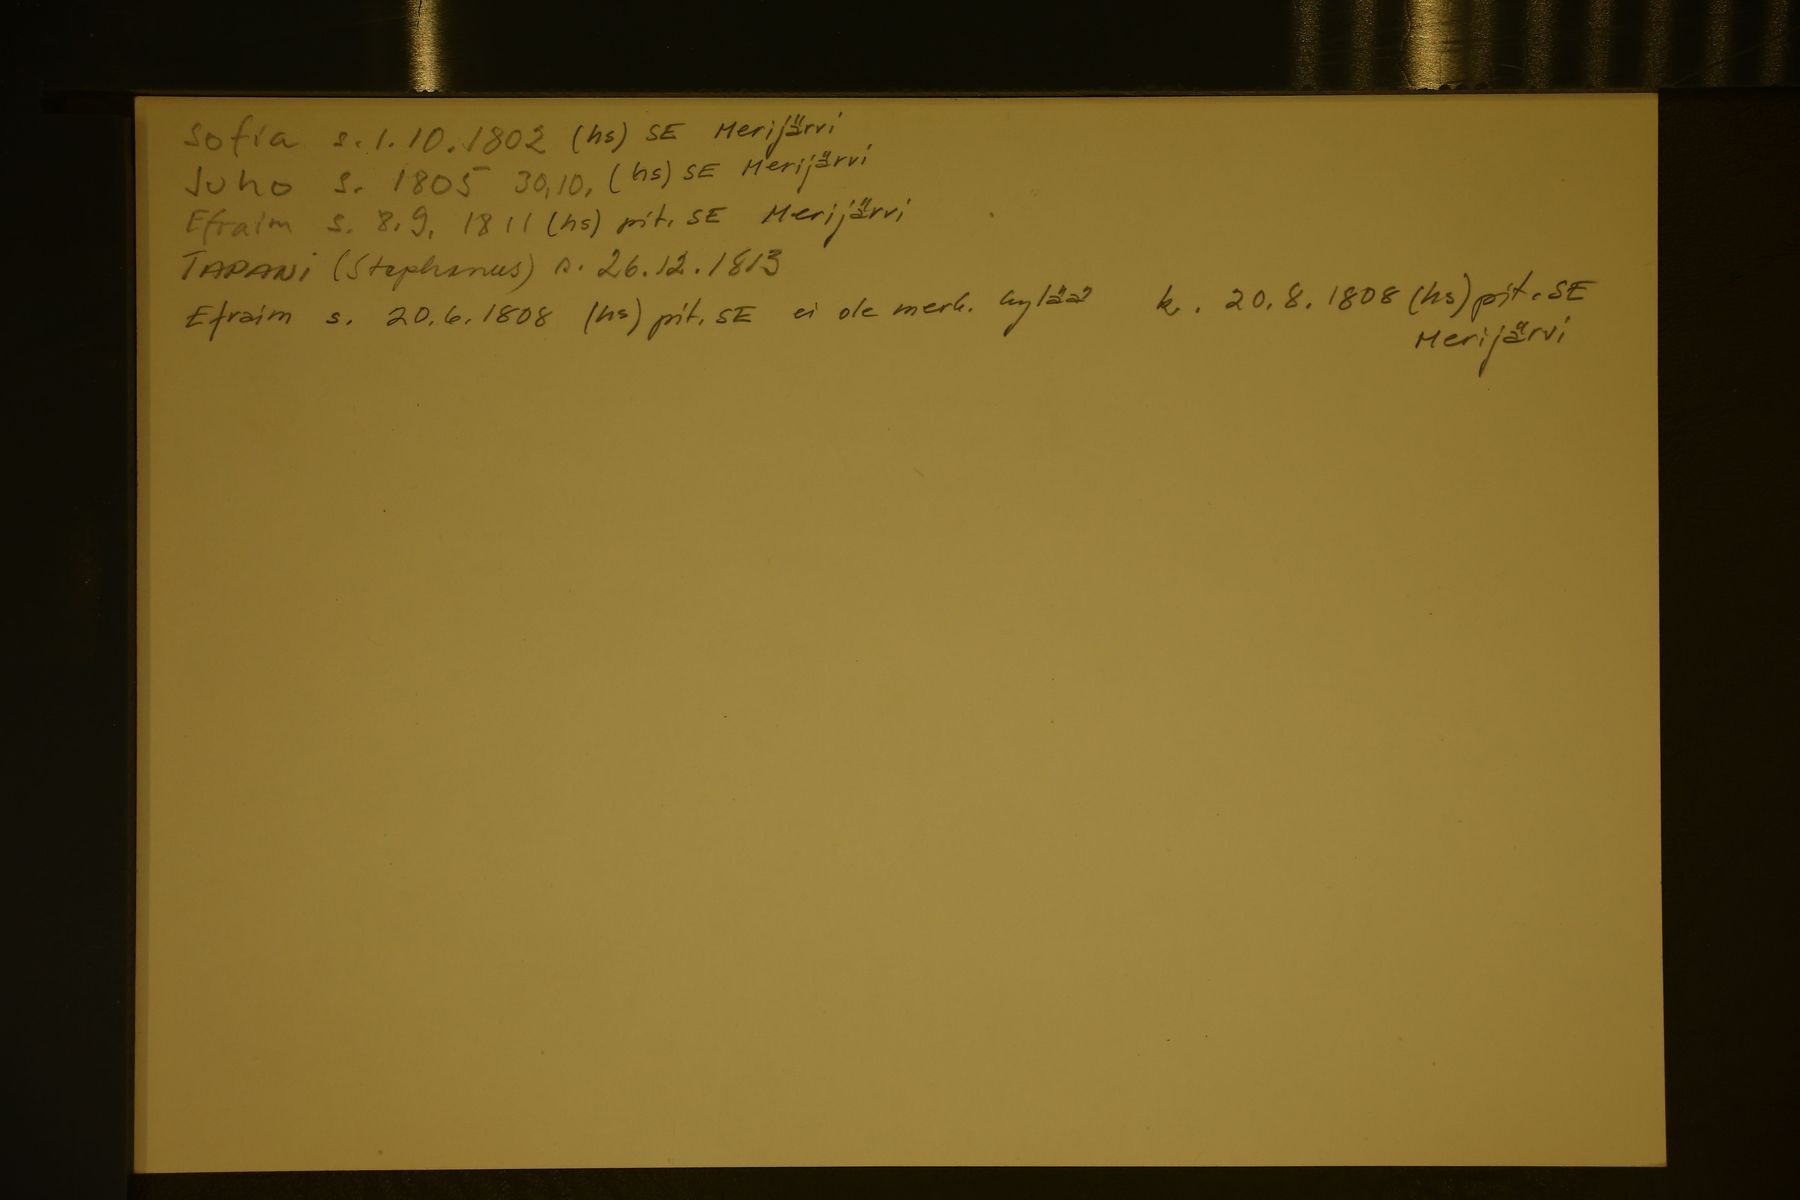 Sofia s. 1.10.1802 (hs) SE Merijärvi
Juho s. 1805 30,10, (hs) SE Merijärvi
Efraim s. 8.9. 1811 (hs) pit. SE Merijärvi
TAPANi (Stephanus) s. 26.12.1813
Efraim s. 20.6.1808 (hs) pit. SE ei ole merk. kylää k. 20.8.1808 (hs) pit. SE
Merijärvi